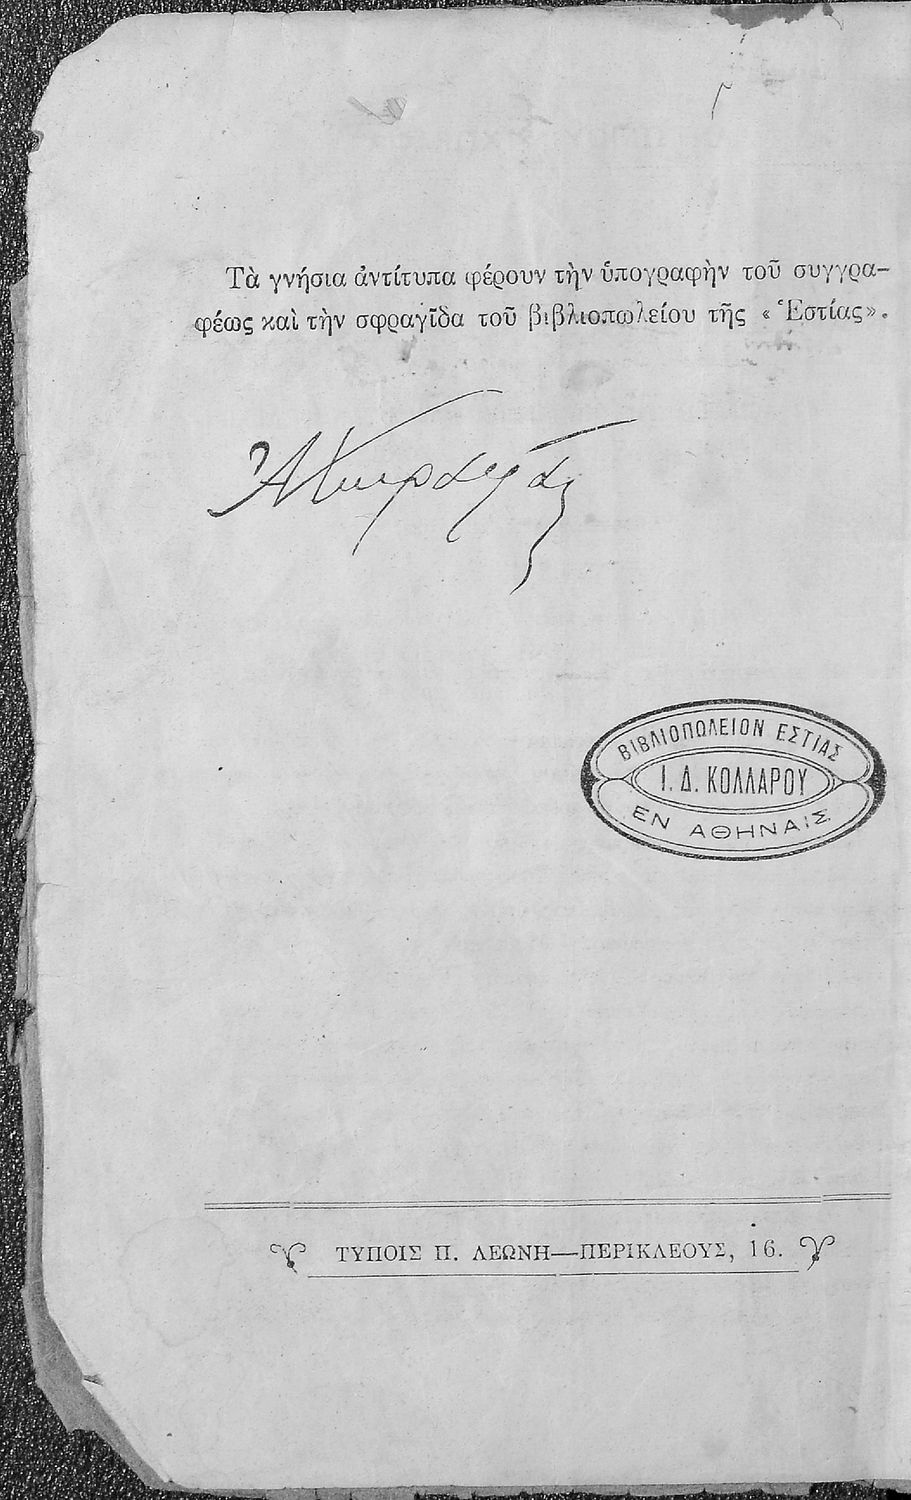 Τὰ γνήσια ἀντίτυπα φέρουν τὴν ὑπογραφὴν τοῦ συγγρα-
φέως καὶ τὴν σφραγῖδα τοῦ βιβλιοπωλείου τῆς «Ἑστίας».
ΒΙΒΛΙΟΠΩΛΕΙΟΝ ΕΣΤΙΑΣ
Ι. Δ. ΚΟΛΛΑΡΟΥ
ΕΝ ΑΘΗΝΑΙΣ
ΤΥΠΟΙΣ Π. ΛΕΩΝΗ—ΠΕΡΙΚΛΕΟΥΣ, 16.